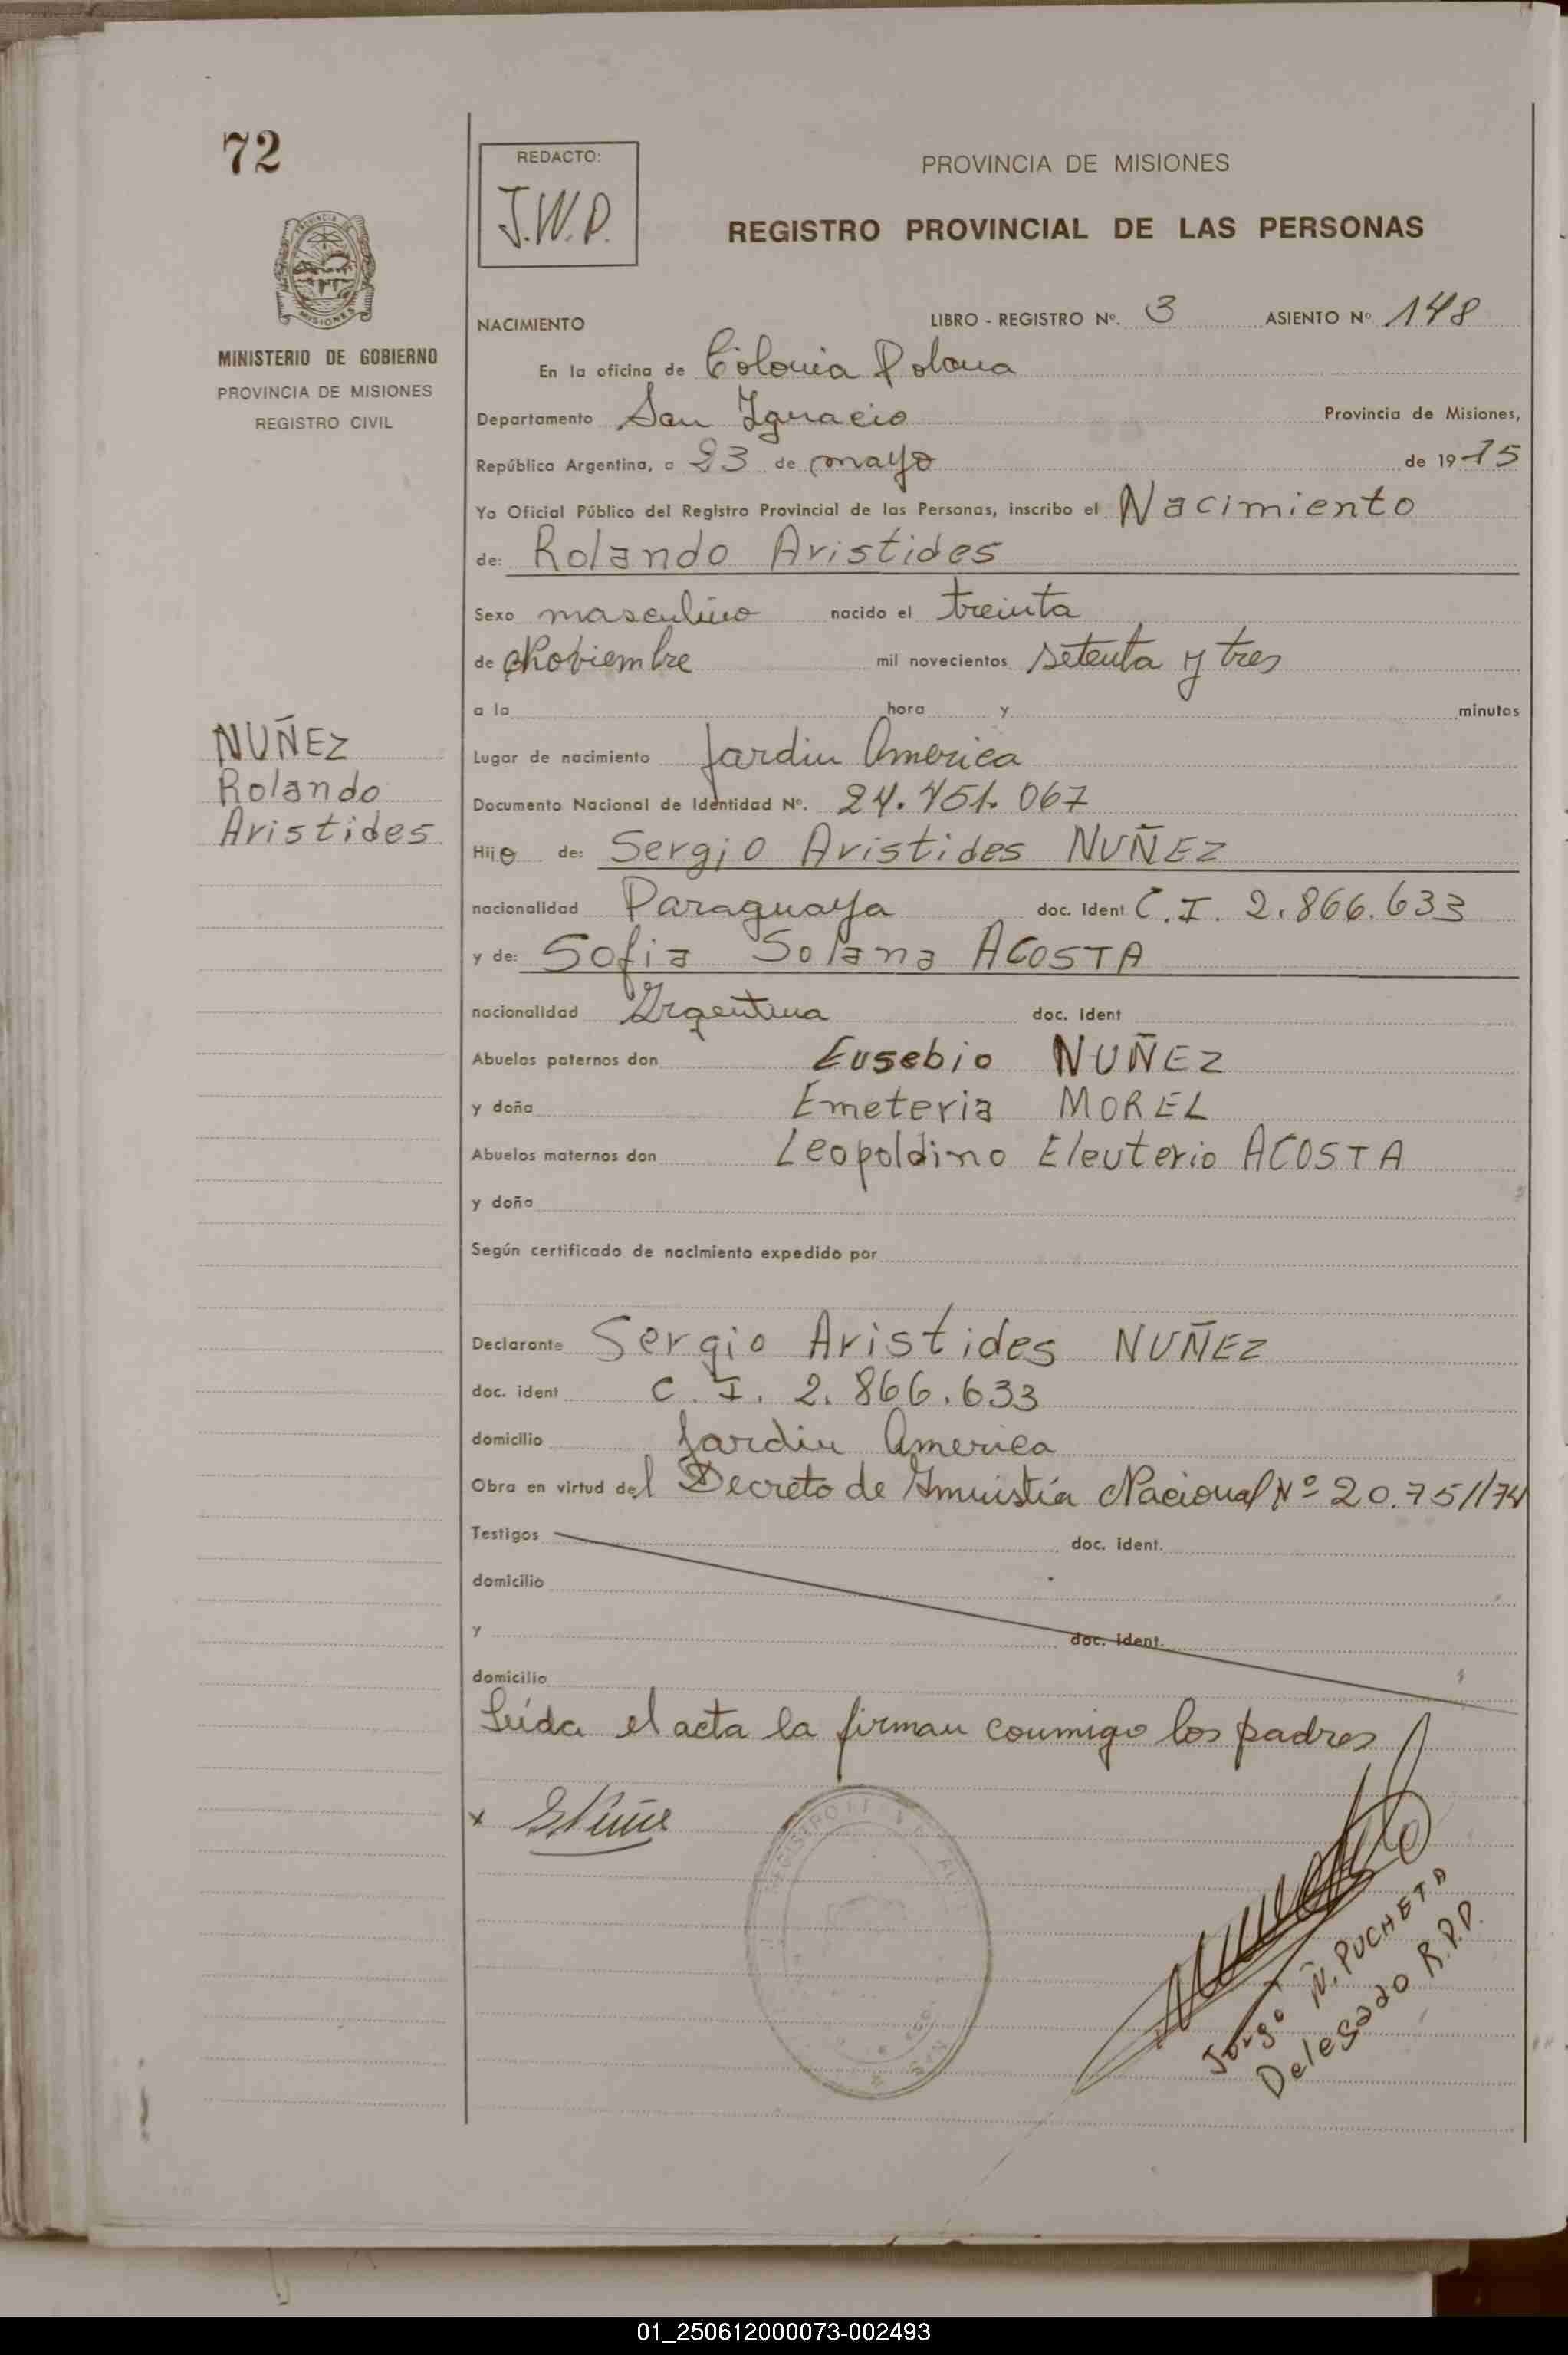 72
REDACTO:
J.W.P.
PROVINCIA DE MISIONES
REGISTRO PROVINCIAL DE LAS PERSONAS
MISIONES
MINISTERIO DE GOBIERNO
PROVINCIA DE MISIONES
REGISTRO CIVIL
NACIMIENTO LIBRO - REGISTRO Nº. 3 ASIENTO Nº 148
En la oficina de Colonia Polana
Departamento San Ignacio Provincia de Misiones,
República Argentina, a 23 de mayo de 1975
Yo Oficial Público del Registro Provincial de las Personas, inscribo el Nacimiento
de: Rolando Aristides
Sexo masculino nacido el treinta
de Noviembre mil novecientos setenta y tres
a la hora y minutos
NUÑEZ
Rolando
Aristides
Lugar de nacimiento Jardin America
Documento Nacional de Identidad Nº. 24.451.067
Hijo de: Sergio Aristides NUÑEZ
nacionalidad Paraguaya doc. ident C.I. 2.866.633
y de: Sofia Solana ACOSTA
nacionalidad Argentina doc. ident
Abuelos paternos don Eusebio NUÑEZ
y doña Emeteria MOREL
Abuelos maternos don Leopoldino Eleuterio ACOSTA
y doña
Según certificado de nacimiento expedido por
Declarante Sergio Aristides NUÑEZ
doc. ident C.I. 2.866.633
domicilio Jardin America
Obra en virtud del Decreto de Amnistía Nacional Nº 20.751/74
Testigos doc. ident.
domicilio
y doc. ident.
domicilio
Leída el acta la firman conmigo los padres
x SNuñe
Jorge W. PUCHETA
Delegado R.P.P.
01_250612000073-002493